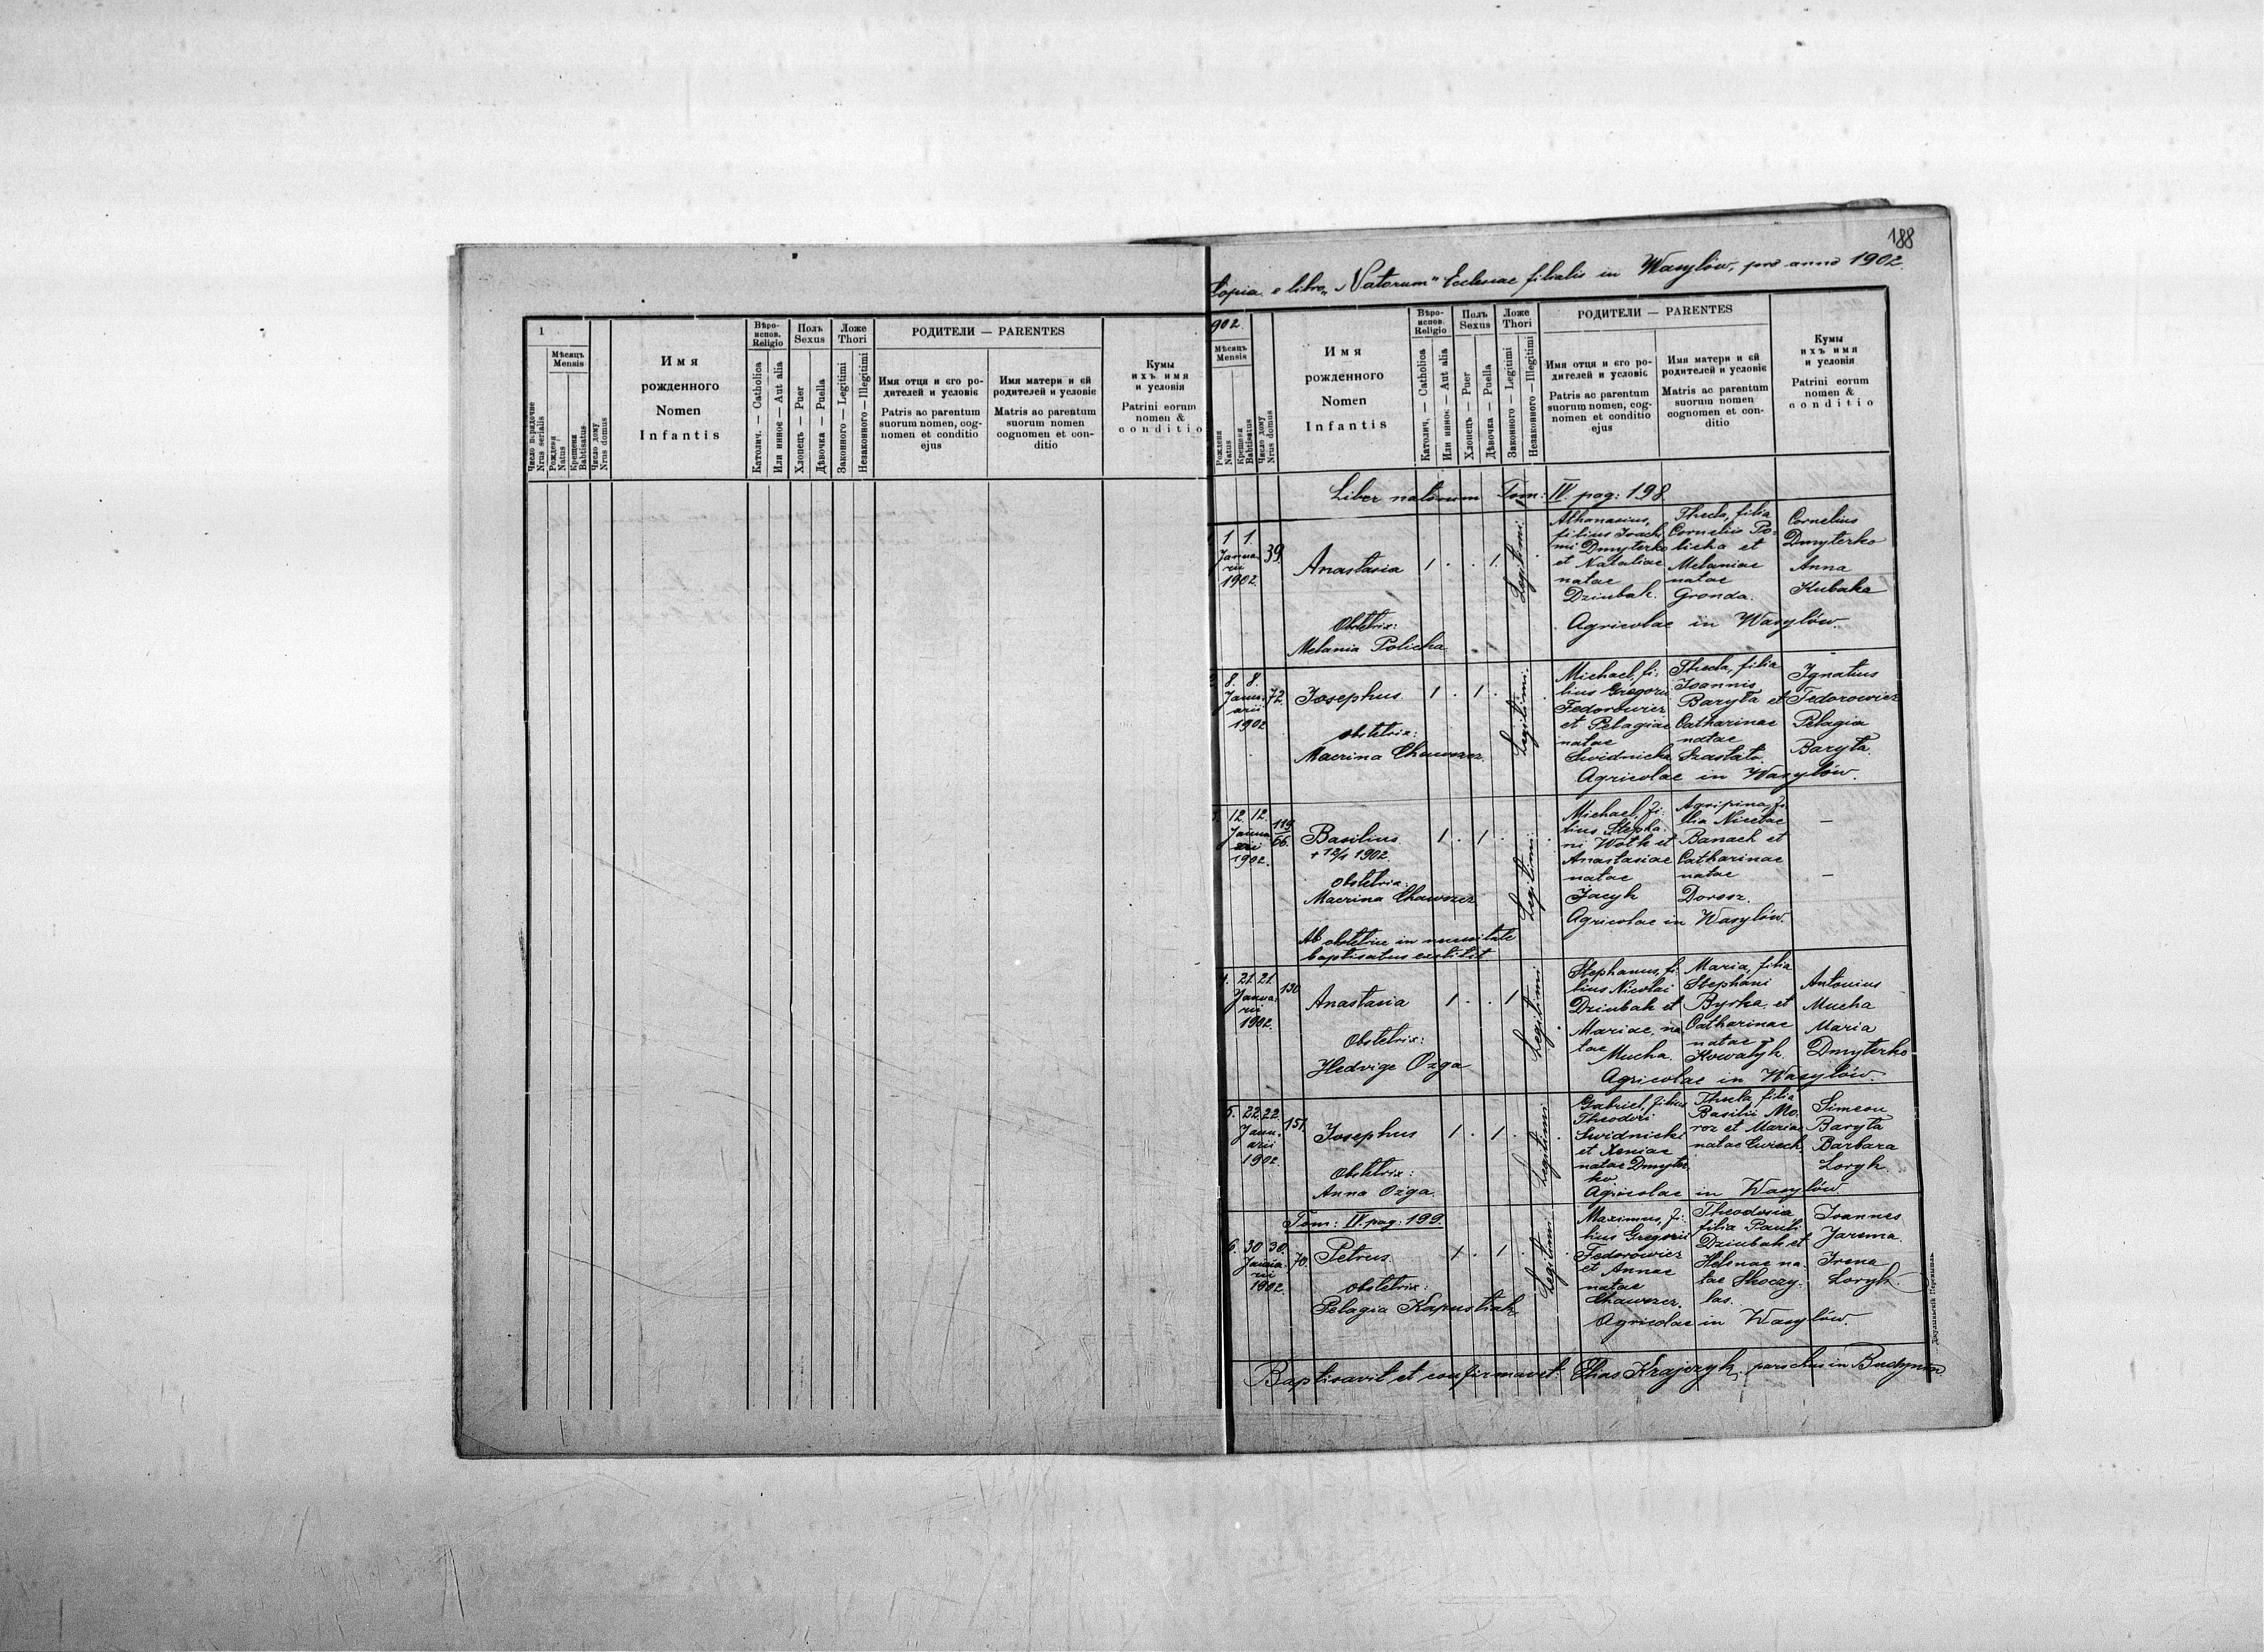 188
Copia e libro „Natorum" Ecclesiae filialis in Wasylów, pro anno 1902.
1
Мѣсяцъ
Mensis
Число порядочне
Nrus serialis
Рожденя
Natus
Крещеня
Babtisatus
Число дому
Nrus domus
Имя
рожденного
Nomen
Infantis
Вѣро-
испов.
Religio
Католич. — Catholica
Или инноє — Aut alia
Полъ
Sexus
Хлопецъ — Puer
Дѣвочка — Puella
Ложе
Thori
Законного — Legitimi
Незаконного — Illegitimi
РОДИТЕЛИ — PARENTES
Имя отця и єго ро-
дителей и условіє
Patris ac parentum
suorum nomen, cog-
nomen et conditio
ejus
Имя матери и єй
родителей и условіє
Matris ac parentum
suorum nomen
cognomen et con-
ditio
Кумы
ихъ имя
и условія
Patrini eorum
nomen &
conditio
902.
Мѣсяцъ
Mensis
Рожденя
Natus
Крещеня
Babtisatus
Число дому
Nrus domus
Имя
рожденного
Nomen
Infantis
Вѣро-
испов.
Religio
Католич. — Catholica
Или инноє — Aut alia
Полъ
Sexus
Хлопецъ — Puer
Дѣвочка — Puella
Ложе
Thori
Законного — Legitimi
Незаконного — Illegitimi
РОДИТЕЛИ — PARENTES
Имя отця и єго ро-
дителей и условіє
Patris ac parentum
suorum nomen, cog-
nomen et conditio
ejus
Имя матери и єй
родителей и условіє
Matris ac parentum
suorum nomen
cognomen et con-
ditio
Кумы
ихъ имя
и условія
Patrini eorum
nomen &
conditio
Liber natorum Tom: IV. pag: 198.
1 1.
Janua-
rii
1902.
39.
Anastasia
1 . . 1.
Legitimi
Obstetrix:
Melania Policha
Athanasius,
filius Joachi
mi Dmyterko
et Nataliae
natae
Dziubak.
Thecla, filia
Cornelii Po-
licha et
Melaniae
natae
Gronda.
Cornelius
Dmyterko
Anna
Kubaka
Agricolae in Wasylów.
8. 8.
Janu-
arii
1902
72.
Josephus.
1 . 1 .
Legitimi.
obstetrix:
Macrina Chawszcz.
Michael, fi-
lius Gregorii
Fedorowicz
et Pelagiae
natae
Swidnicka
Thecla, filia
Joannis
Baryła et
Catharinae
natae
Szastało.
Ignatius
Fedorowicz
Pelagia
Baryła.
Agricolae in Wasylów.
12. 12.
Janua-
rii
1902.
119
66.
Basilius.
+ 12/1 1902.
1 . 1 .
Legitimi.
obstetrix:
Macrina Chawszcz
Ab obstetrice in necessitate
baptisatus extitit
Michael, fi-
lius Stepha-
ni Wolk et
Anastasiae
natae
Jacyk
Agripina, fi-
lia Nicetae
Banach et
Catharinae
natae
Dorosz.
—
—
Agricolae in Wasylów.
4. 21. 21.
Janua-
rii
1902.
130
Anastasia
1 . . 1
Legitimi
Obstetrix:
Hedvige Ozga
Stephanus, fi-
lius Nicolai
Dziubak et
Mariae, na-
tae
Mucha.
Maria, filia
Stephani
Byrka et
Catharinae
natae
Kowalyk.
Antonius
Mucha
Maria
Dmyterko
Agricolae in Wasylów.
5. 22. 22.
Janu-
arii
1902.
151.
Josephus
1 . 1 .
Legitimi
Obstetrix:
Anna Ozga.
Gabriel, filius
Theodori
Swidnicki
et Xeniae
natae Dmyter-
ko
Thecla, filia
Basilii Mo-
roz et Mariae
natae Cwiech.
Simeon
Baryła
Barbara
Loryk.
Agricolae in Wasylów.
Tom: IV. pag: 199.
6. 30 30.
Janua-
rii
1902.
70.
Petrus.
1 . 1 .
Legitimi
obstetrix:
Pelagia Kapustiak
Maximus, fi-
lius Gregorii
Fedorowicz
et Annae
natae
Chawszcz.
Theodosia
filia Pauli
Dziubak et
Helenae na-
tae Skoczy-
las.
Joannes
Jarema.
Irena
Loryk.
Agricolae in Wasylów.
Baptisavit et confirmavit: Elias Krajczyk, parochus in Budynin